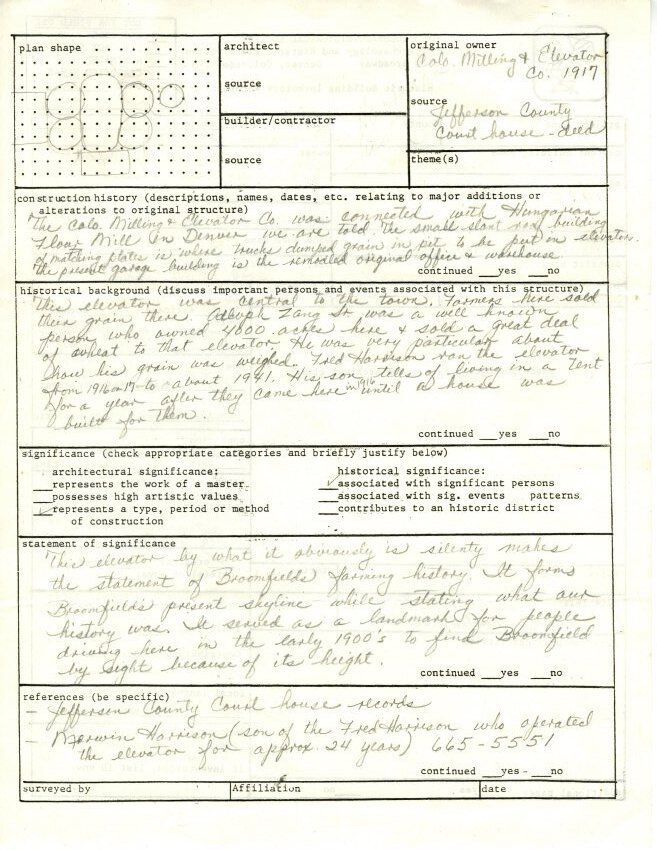 plan shape
architect
source
builder/contractor
source
original owner
Colo. Milling & Elevator
Co. 1917
source
Jefferson County
Court house - deed
theme(s)
construction history (descriptions, names, dates, etc. relating to major additions or
alterations to original structure)
The Colo. Milling & Elevator Co. was connected with Hungarian
Flour Mill in Denver we are told. The small slant roof building
of matching plates is where trucks dumped grain in pit to be put on elevator.
The present garage building is the remodled original office & warehouse.
continued ___yes ___no
historical background (discuss important persons and events associated with this structure)
This elevator was central to the town. Farmers here sold
their grain there. Adolph Zang Sr was a well known
person who owned 4000 acres here & sold a great deal
of wheat to that elevator. He was very particular about
how his grain was weighed. Fred Harrison ran the elevator
from 1916 or 17 to about 1941. His son tells of living in a tent
for a year after they came here in 1916 until a house was
built for them.
continued ___yes ___no
significance (check appropriate categories and briefly justify below)
architectural significance:
___represents the work of a master
___possesses high artistic values
_✓_represents a type, period or method
of construction
historical significance:
_✓_associated with significant persons
___associated with sig. events patterns
___contributes to an historic district
statement of significance
This elevator by what it obviously is silenty makes
the statement of Broomfields farming history. It forms
Broomfield's present skyline while stating what our
history was. It served as a landmark for people
driving here in the early 1900's to find Broomfield
by sight because of its height.
continued ___yes ___no
references (be specific)
- Jefferson County Court house records
- Merwin Harrison (son of the Fred Harrison who operated
the elevator for approx. 24 years) 665-5551
continued ___yes - ___no
surveyed by
Affiliation
date